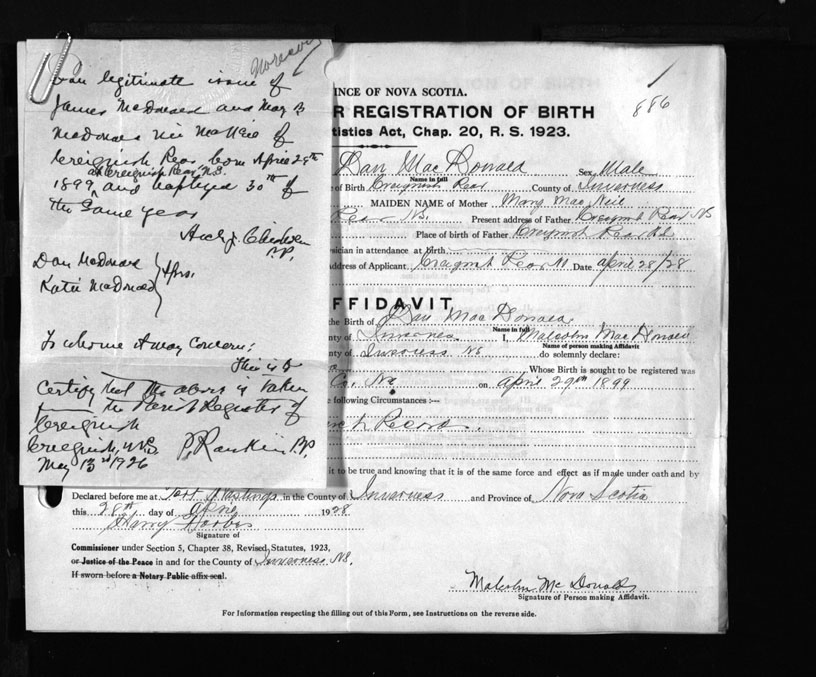 Dan legitimate issue of
James McDonald and Mary B.
McDonald nee McNeil of
Creignish Rear, born April 29th
at Creignish Rear, N.S.
1899, and baptized 30th of
the same year
Arch. J. Chisholm
P.P.
Dan McDonald
Katie McDonald } Sprs.
To whom it may concern:
This is to
certify that the above is taken
from the Parish Register of
Creignish
Creignish, N.S. P. Rankin P.P.
May 13 1926
INCE OF NOVA SCOTIA.
886
R REGISTRATION OF BIRTH
tistics Act, Chap. 20, R. S. 1923.
Dan Mac Donald Sex Male
Name in full
of Birth Craignish Rear County of Inverness
MAIDEN NAME of Mother Mary Mac Neil
Rear N.S. Present address of Father Creignish Rear N.S
Place of birth of Father Creignish Rear N.S
sician in attendance at birth
ddress of Applicant Craignish Rear N Date April 28/28
FFIDAVIT
the Birth of Dan Mac Donald
Name in full
nty of Inverness I, Malcolm Mac Donald
Name of person making Affidavit
nty of Inverness N.S do solemnly declare:
Whose Birth is sought to be registered was
Co. N.S on April 29th 1899
he following Circumstances :—
rch Record.
it to be true and knowing that it is of the same force and effect as if made under oath and by
Declared before me at Port Hastings in the County of Inverness and Province of Nova Scotia
this 28th day of April 1928
Harry
Signature of
Commissioner under Section 5, Chapter 38, Revised Statutes, 1923,
or Justice of the Peace in and for the County of Inverness N.S.
If sworn before a Notary Public affix seal.
Malcolm McDonald
Signature of Person making Affidavit.
For Information respecting the filling out of this Form, see Instructions on the reverse side.